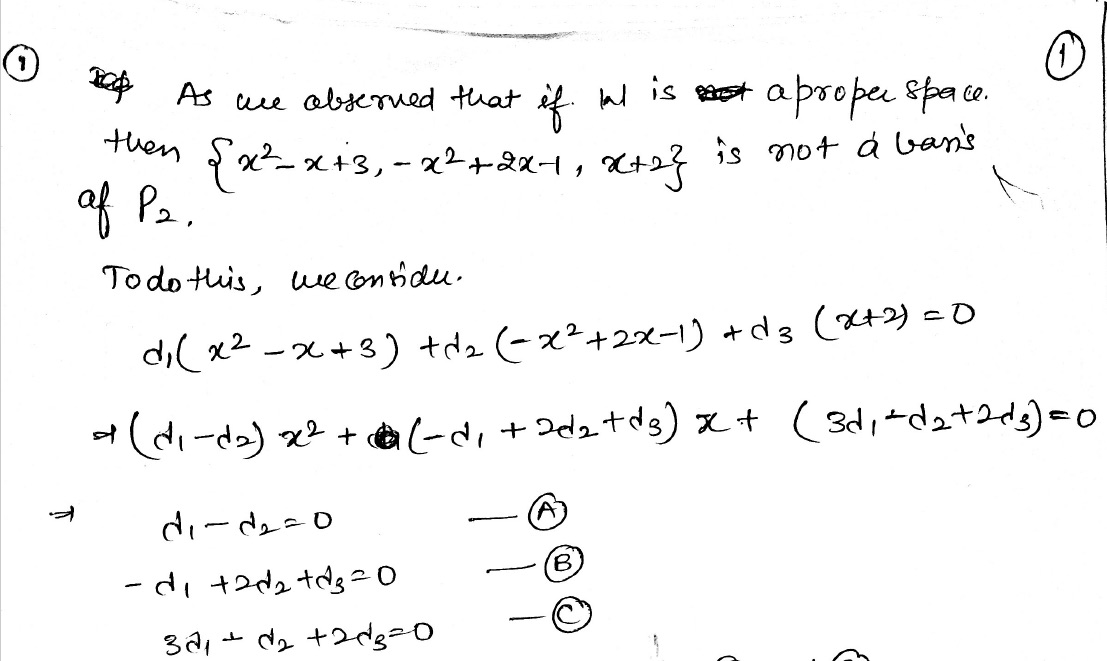 ① ①
As we observed that if W is a proper space.
then {x² - x + 3, - x² + 2x - 1, x + 2} is not a basis
of P₂.
To do this, we consider.
d₁(x² - x + 3) + d₂(-x² + 2x - 1) + d₃(x + 2) = 0
⇒ (d₁ - d₂) x² + (-d₁ + 2d₂ + d₃) x + (3d₁ - d₂ + 2d₃) = 0
⇒ d₁ - d₂ = 0 — Ⓐ
- d₁ + 2d₂ + d₃ = 0 — Ⓑ
3d₁ - d₂ + 2d₃ = 0 — Ⓒ